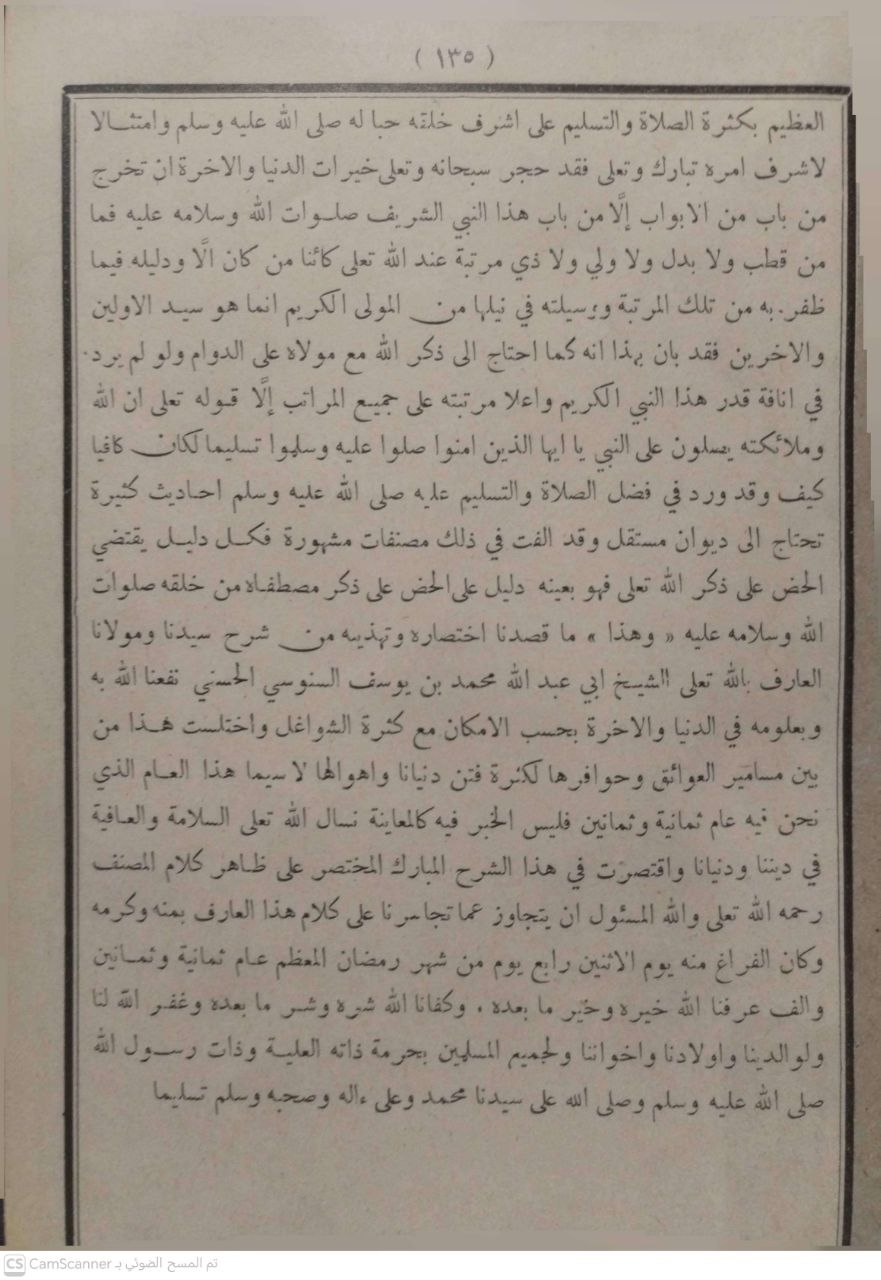 ( ١٣٥ )
العظيم بكثرة الصلاة والتسليم على اشرف خلقه حبا له صلى الله عليه وسلم وامتثالا
لاشرف امره تبارك وتعلى فقد حجر سبحانه وتعلى خيرات الدنيا والاخرة ان تخرج
من باب من الابواب إلّا من باب هذا النبي الشريف صلوات الله وسلامه عليه فما
من قطب ولا بدل ولا ولي ولا ذي مرتبة عند الله تعلى كائنا من كان الّا ودليله فيما
ظفر به من تلك المرتبة ووسيلته في نيلها من المولى الكريم انما هو سيد الاولين
والاخرين فقد بان بهذا انه كما احتاج الى ذكر الله مع مولاه على الدوام ولو لم يرد
في انافة قدر هذا النبي الكريم واعلا مرتبته على جميع المراتب إلّا قوله تعلى ان الله
وملائكته يصلون على النبي يا ايها الذين امنوا صلوا عليه وسلموا تسليما لكان كافيا
كيف وقد ورد في فضل الصلاة والتسليم عليه صلى الله عليه وسلم احاديث كثيرة
تحتاج الى ديوان مستقل وقد الفت في ذلك مصنفات مشهورة فكل دليل يقتضي
الحض على ذكر الله تعلى فهو بعينه دليل على الحض على ذكر مصطفاه من خلقه صلوات
الله وسلامه عليه « وهذا » ما قصدنا اختصاره وتهذيبه من شرح سيدنا ومولانا
العارف بالله تعلى الشيخ ابي عبد الله محمد بن يوسف السنوسي الحسني نفعنا الله به
وبعلومه في الدنيا والاخرة بحسب الامكان مع كثرة الشواغل واختلست هذا من
بين مسامير العوائق وحوافرها لكثرة فتن دنيانا واهوالها لا سيما هذا العام الذي
نحن فيه عام ثمانية وثمانين فليس الخبر فيه كالمعاينة نسال الله تعلى السلامة والعافية
في ديننا ودنيانا واقتصرت في هذا الشرح المبارك المختصر على ظاهر كلام المصنف
رحمه الله تعلى والله المسئول ان يتجاوز عما تجاسرنا على كلام هذا العارف بمنه وكرمه
وكان الفراغ منه يوم الاثنين رابع يوم من شهر رمضان المعظم عام ثمانية وثمانين
والف عرفنا الله خيره وخير ما بعده . وكفانا الله شره وشر ما بعده وغفر الله لنا
ولوالدينا واولادنا واخواننا ولجميع المسلمين بحرمة ذاته العلية وذات رسول الله
صلى الله عليه وسلم وصلى الله على سيدنا محمد وعلى ءاله وصحبه وسلم تسليما
CS CamScanner تم المسح الضوئي بـ